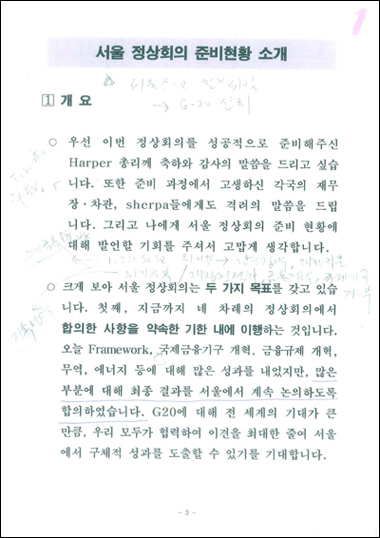 1
서울 정상회의 준비현황 소개
→ G-20
1 개 요
○ 우선 이번 정상회의를 성공적으로 준비해주신
Harper 총리께 축하와 감사의 말씀을 드리고 싶습
니다. 또한 준비 과정에서 고생하신 각국의 재무
장·차관, sherpa들에게도 격려의 말씀을 드립
니다. 그리고 나에게 서울 정상회의 준비 현황에
대해 발언할 기회를 주셔서 고맙게 생각합니다.
○ 크게 보아 서울 정상회의는 두 가지 목표를 갖고 있습
니다. 첫째, 지금까지 네 차례의 정상회의에서
합의한 사항을 약속한 기한 내에 이행하는 것입니다.
오늘 Framework, 국제금융기구 개혁, 금융규제 개혁,
무역, 에너지 등에 대해 많은 성과를 내었지만, 많은
부분에 대해 최종 결과를 서울에서 계속 논의하도록
합의하였습니다. G20에 대해 전 세계의 기대가 큰
만큼, 우리 모두가 협력하여 이견을 최대한 줄여 서울
에서 구체적 성과를 도출할 수 있기를 기대합니다.
- 3 -